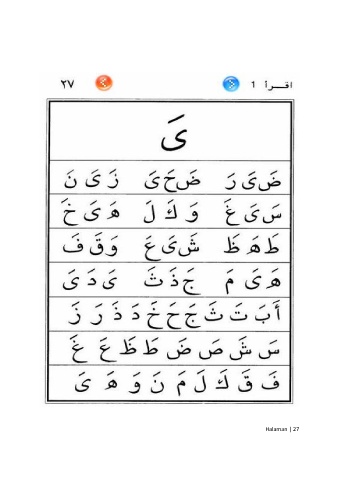 اقرأ 1 ٢٧
یَ
ضَ یَ رَ ضَ حَ یَ زَ یَ نَ
سَ یَ غَ وَ كَ لَ هَ یَ خَ
طَ هَ ظَ شَ یَ عَ وَ قَ فَ
هَ یَ مَ جَ ذَ ثَ یَ دَ یَ
أَ بَ تَ ثَ جَ حَ خَ دَ ذَ رَ زَ
سَ شَ صَ ضَ طَ ظَ عَ غَ
فَ قَ كَ لَ مَ نَ وَ هَ یَ
Halaman | 27